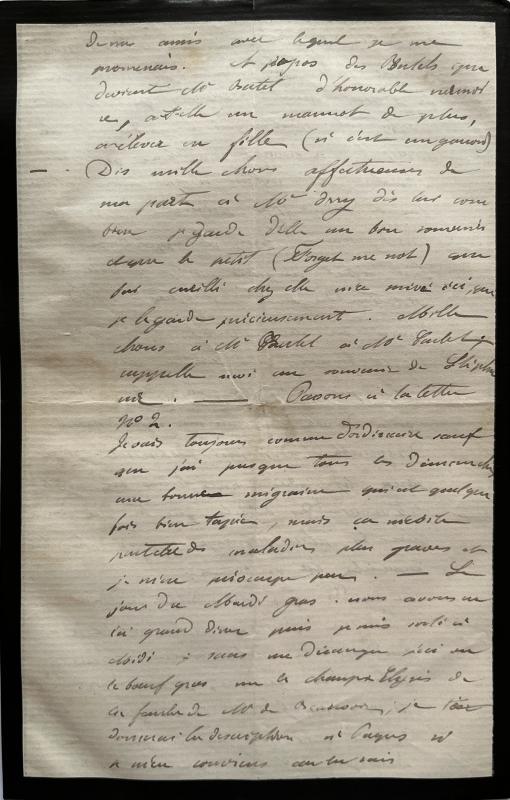 de nos amis avec lequel je me
promenais. A propos des Bartels que
devient Mr Bartel d'honorable mémoi
re, a-t-elle un marmot de plus,
à élever en fille (si c'est un garçon)
Dis mille choses affectueuses de
ma part à Me dis lui com
bien je garde d'elle un bon souvenir
et que le petit (Forget me not) que
fut cueilli chez elle m'est arrivé ici, que
je le garde précieusement. Mille
choses à Mr Bartel à Me Bartel,
rappelle moi au souvenir de
me. — Passons à la lettre
No 2.
Je vais toujours comme d'ordinaire sauf
que j'ai presque tous les Dimanches
une bonne migraine qui est quelque
fois bien tapée, mais ça m'évite
peut être des maladies plus graves et
je m'en préoccupe peu. — Le
jour du Mardi gras nous avons eu
ici grand dîner puis je suis sorti à
Midi; sans me déranger j'ai vu
le bœuf gras sur les champs Elysées de
la fenêtre de Mr de ; je t'en
donnerai la description à Pâques si
je m'en souviens car tu sais